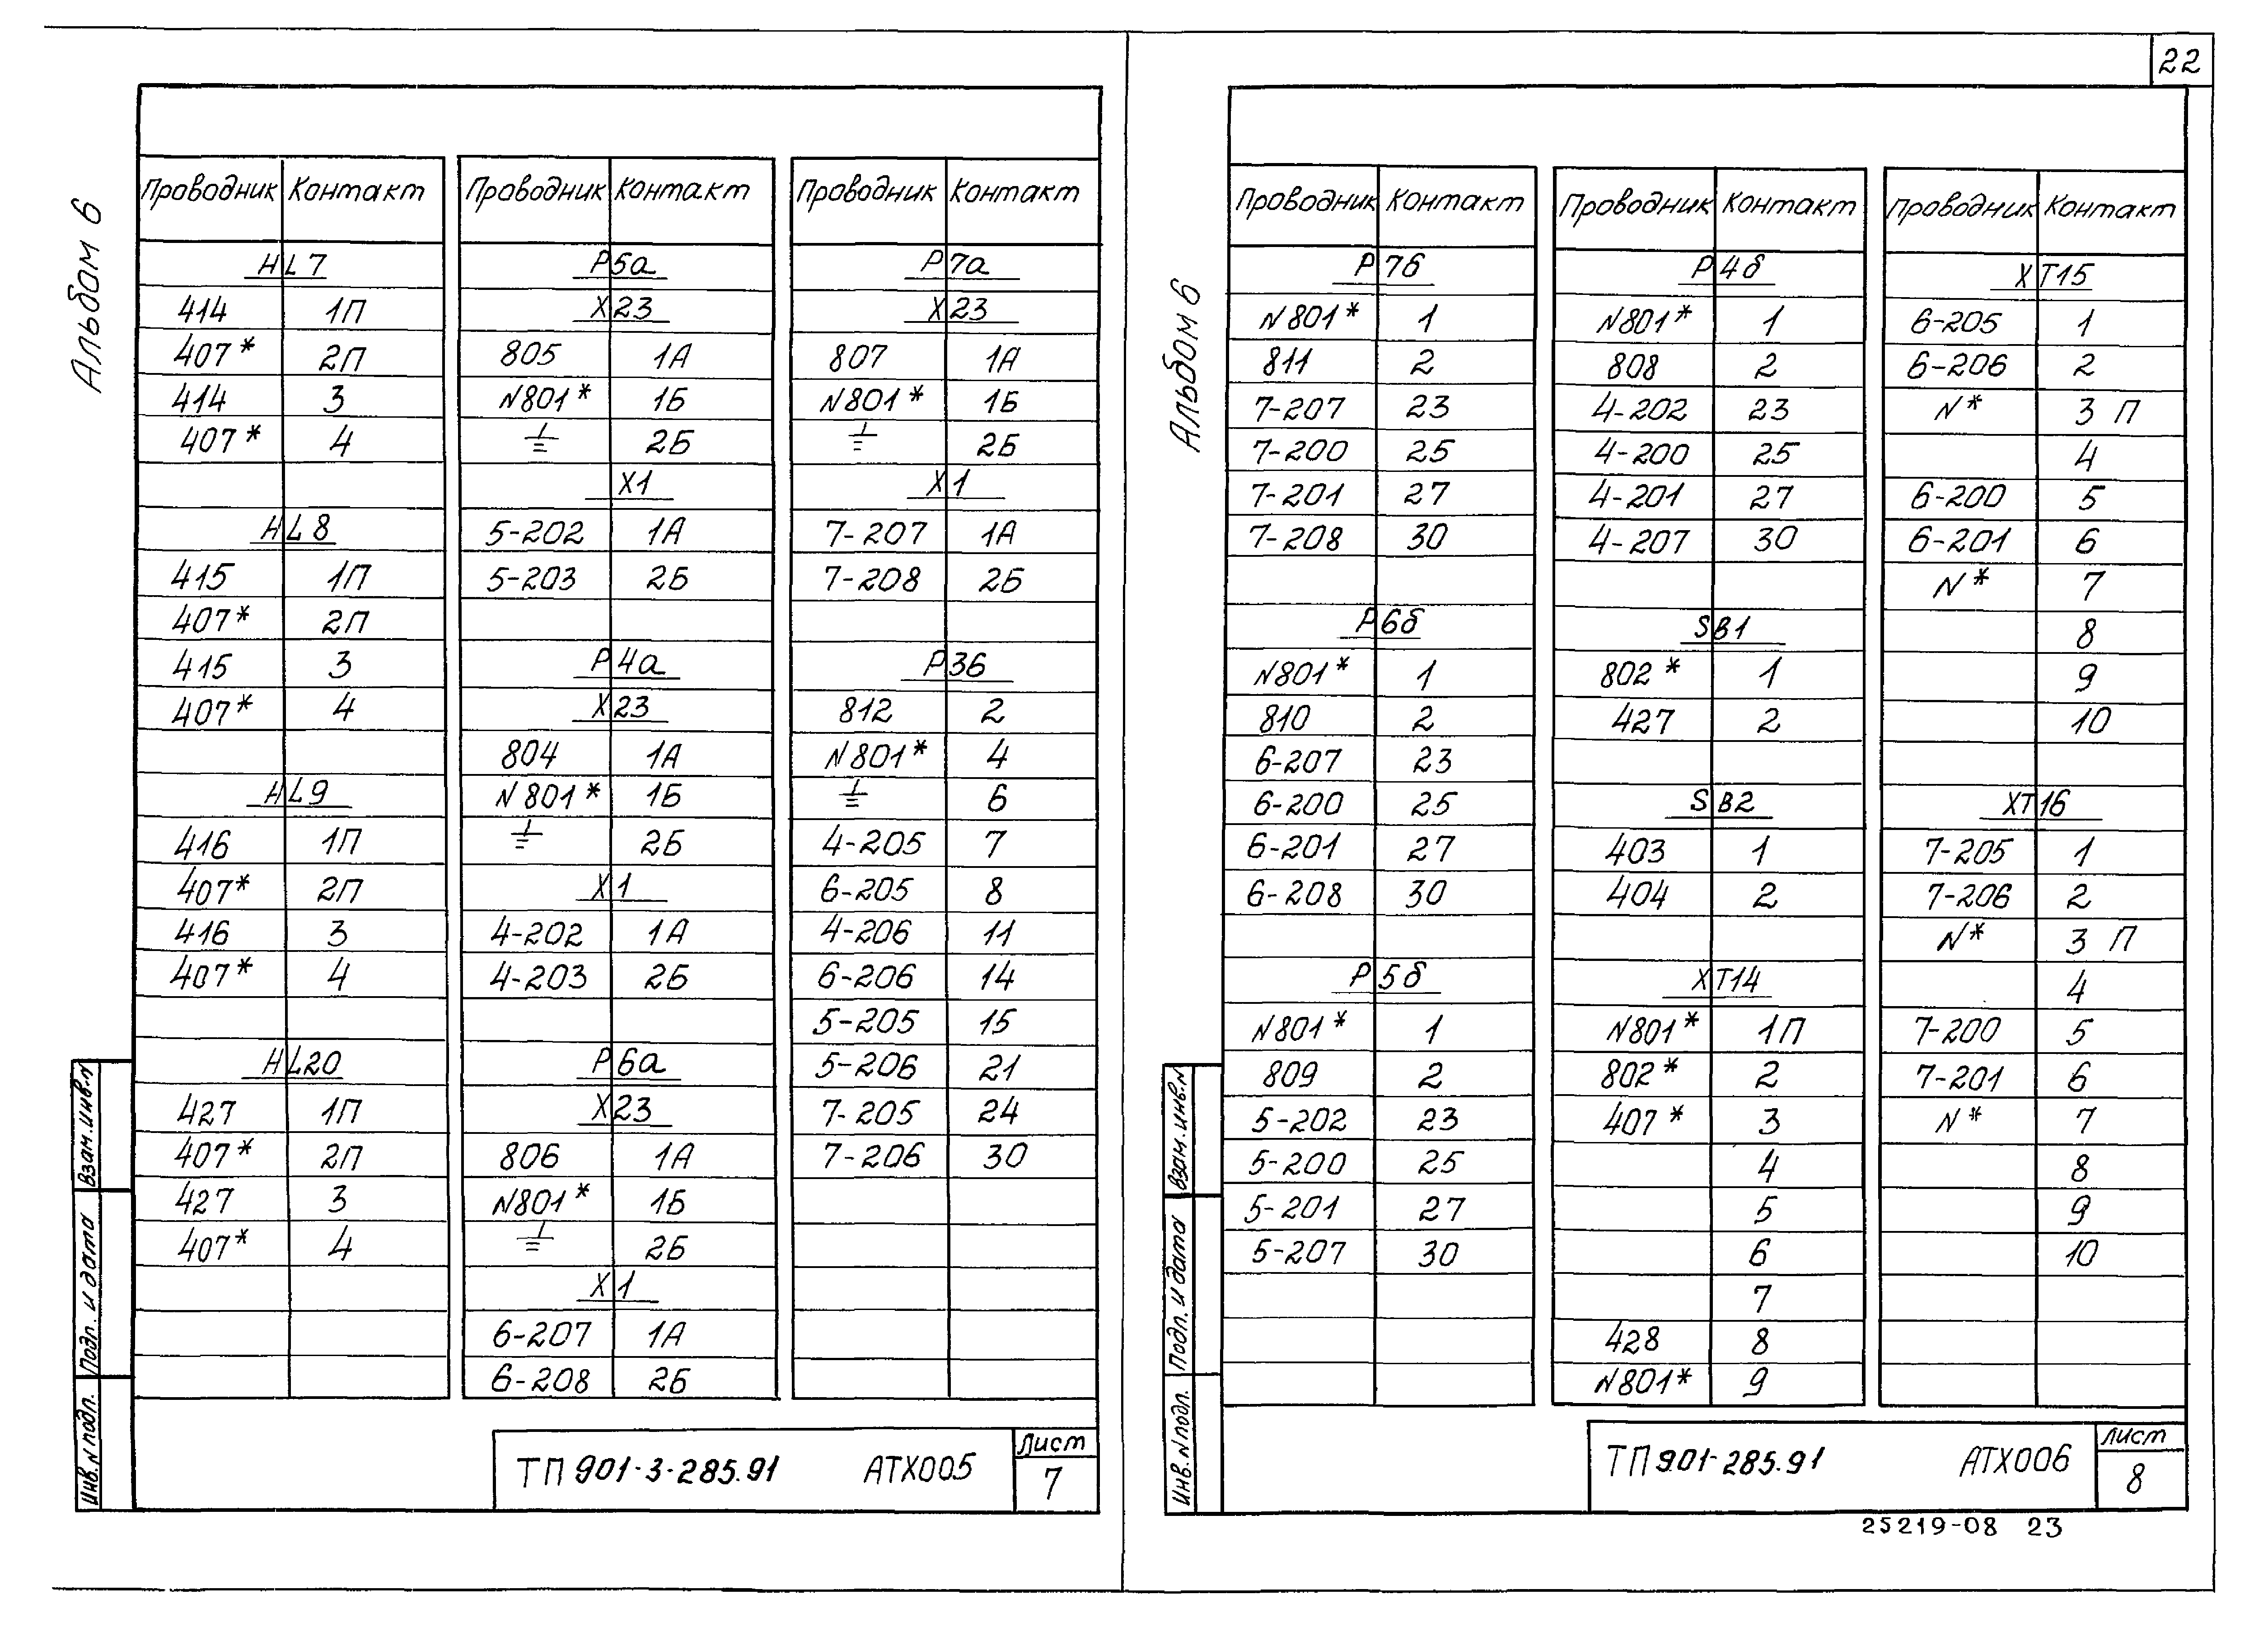 22
Альбом 6
Проводник Контакт
HL7
414 1П
407* 2П
414 3
407* 4
HL8
415 1П
407* 2П
415 3
407* 4
HL9
416 1П
407* 2П
416 3
407* 4
HL20
427 1П
407* 2П
427 3
407* 4
Проводник Контакт
P5а
X23
805 1А
N801* 1Б
⏚ 2Б
X1
5-202 1А
5-203 2Б
P4а
X23
804 1А
N801* 1Б
⏚ 2Б
X1
4-202 1А
4-203 2Б
P6а
X23
806 1А
N801* 1Б
⏚ 2Б
X1
6-207 1А
6-208 2Б
Проводник Контакт
P7а
X23
807 1А
N801* 1Б
⏚ 2Б
X1
7-207 1А
7-208 2Б
P3б
812 2
N801* 4
⏚ 6
4-205 7
6-205 8
4-206 11
6-206 14
5-205 15
5-206 21
7-205 24
7-206 30
Взам.инв.N
Подп. и дата
Инв.N подл.
ТП 901-3-285.91 АТХ005
Лист
7
Альбом 6
Проводник Контакт
P7б
N801* 1
811 2
7-207 23
7-200 25
7-201 27
7-208 30
P6б
N801* 1
810 2
6-207 23
6-200 25
6-201 27
6-208 30
P5б
N801* 1
809 2
5-202 23
5-200 25
5-201 27
5-207 30
Проводник Контакт
P4б
N801* 1
808 2
4-202 23
4-200 25
4-201 27
4-207 30
SB1
802* 1
427 2
SB2
403 1
404 2
XT14
N801* 1П
802* 2
407* 3
4
5
6
7
428 8
N801* 9
Проводник Контакт
XT15
6-205 1
6-206 2
N* 3 П
4
6-200 5
6-201 6
N* 7
8
9
10
XT16
7-205 1
7-206 2
N* 3 П
4
7-200 5
7-201 6
N* 7
8
9
10
Взам.инв.N
Подп. и дата
Инв.N подл.
ТП 901-285.91 АТХ006
Лист
8
25219-08 23